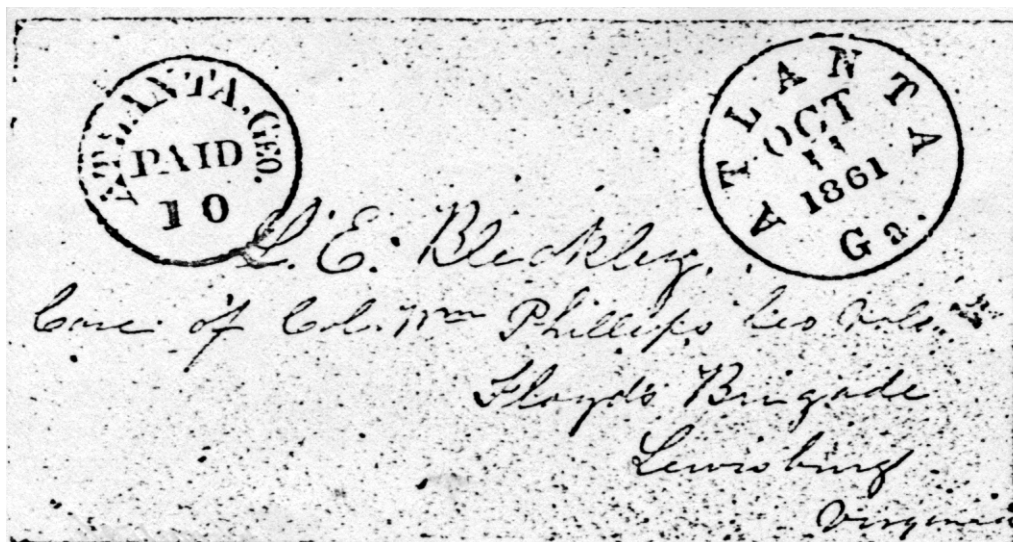 ATLANTA, GEO.
PAID
10
ATLANTA
OCT
11
1861
Ga.
L. E. Bleckley,
Care of Col. Wm Phillips Geo Vols
Floyd's Brigade
Lewisburg
Virginia